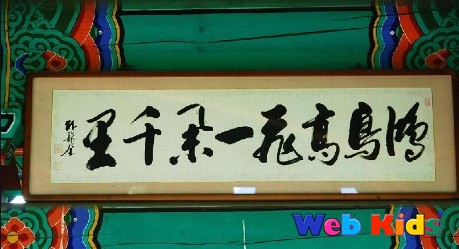 鴻鵠高飛一擧千里
Web Kids